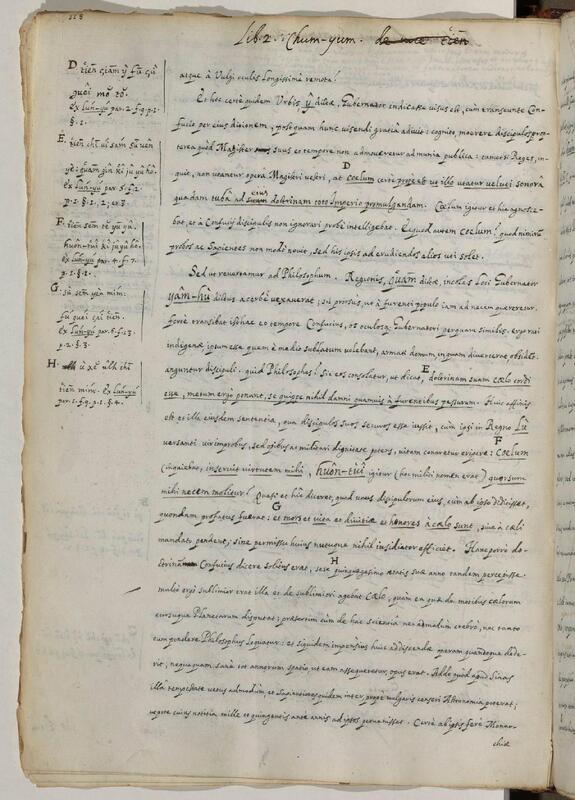 Lib. 2. Chum-yum. de voce tien
D. tien ciam y fu çu
guei mo to.
ex Lun-yu par. 2. f. 9. p. 1.
§. 1.
E. tien chi ui sam su ven
ye: quam gin ki ju yu ho.
ex Lun-yu par. 5. f. 2.
p. 2. §. 1., 2; et 3.
F. tien sem te yu yu,
huon-tui ki ju yu ho.
ex Lun-yu par. 4. f. 7.
p. 1. §. 2.
G. su sem yeu mim:
fu quei çai tien.
ex Lun-yu par. 6. f. 13.
p. 2. §. 3.
H. u xe ulh chi
tien mim. ex Lun-yu
par. 1. f. 9. p. 1. §. 4.
atque à Vulgi oculis longissimè remota!
Et hoc certè quidem Urbis Y dictæ, Gubernator indicasse visus est, cum transeunte Con-
fucio per eius ditionem, postquam hunc visendi gratia adiit: cognito, mœrere discipulos prop-
terea quod Magister suus eo tempore non admoveretur ad munia publica: cametsi Reges, in-
quit, non utantur operâ Magistri vestri, at D Cœlum certè projecto ut illo utatur veluti sonorâ
quadam tubâ ad eius doctrinam toto Imperio promulgandam. Cœlum igitur et hic agnosce-
bat, et à Confucij discipulis non ignorari probè intelligebat. Et quod autem Cœlum? quod nimirum
probos ac Sapientes non modò novit, sed his ipsis ad erudiendos alios uti solet.
Sed ut revertamur ad Philosophum. Regionis, quam dictæ, incolas loci Gubernator
yam-hu dictus acerbè vexaverat; sic prorsus, ut à furenti populo iam ad necem quæreretur.
fortè transibat isthac eo tempore Confucius, os oculosque Gubernatori perquam similis. ergo rati
indigenæ ipsum esse quem è medio sublatum volebant, armati domum, in quam diverterat obsident.
anguntur discipuli. quid Philosophus? Sic eos consolatur, ut dicat, E doctrinam suam cælo cordi
esse, metum ergo ponant, se quippe nihil damni quamvis à furentibus passurum. Huic affinis
est et illa eiusdem sententia, qua discipulos suos securos esse iussit, cum ipsi in Regno Lu
versanti vir improbus, sed opibus ac militari dignitate potens, vitam conaretur eripere: F Cœlum
(inquiebat) inseruit virtutem mihi, huon-tui igitur (hoc militi nomen erat) quorsum
mihi necem molitur? Quasi et hîc diceret, quod unus discipulorum eius, cùm ab ipso didicisset,
quondam profatus fuerat: G et mors et vita et divitiæ et honores à cœlo sunt, sive à cæli
mandato pendent; sine permissu huius nutuque nihil insidiator efficiet. Hanc porrò do-
ctrinam Confucius dicere solitus erat, sese H quinquagesimo ætatis suæ anno tandem percepisse
multò ergo sublimior erat illa et de sublimiori agebat Cælo, quàm ea quæ de motibus cælorum
cursuque Planetarum disputat; præsertim cùm de hac scientia nec admodum crebrò, nec tanto
cum pondere Philosophus loquatur: et siquidem impensiùs huic addiscendæ operam quandoque dede-
rit, nequaquam sanè tot annorum spatio, ut eam assequeretur, opus erat. Adde quòd apud Sinas
illâ tempestate vetus admodum, et Sapientum quidem inter, propè vulgaris censeri Astronomia poterat;
utpote cuius notitia mille et quingentis ante annis ad ipsos permanasset. Certè ab ipsis ferè Monar-
chiæ